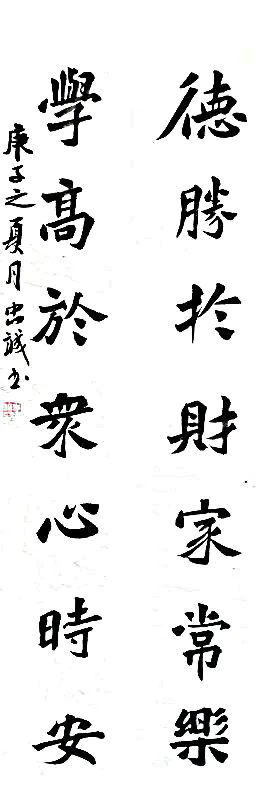 德勝於財家常樂
學高於衆心時安
庚子之夏月忠誠书